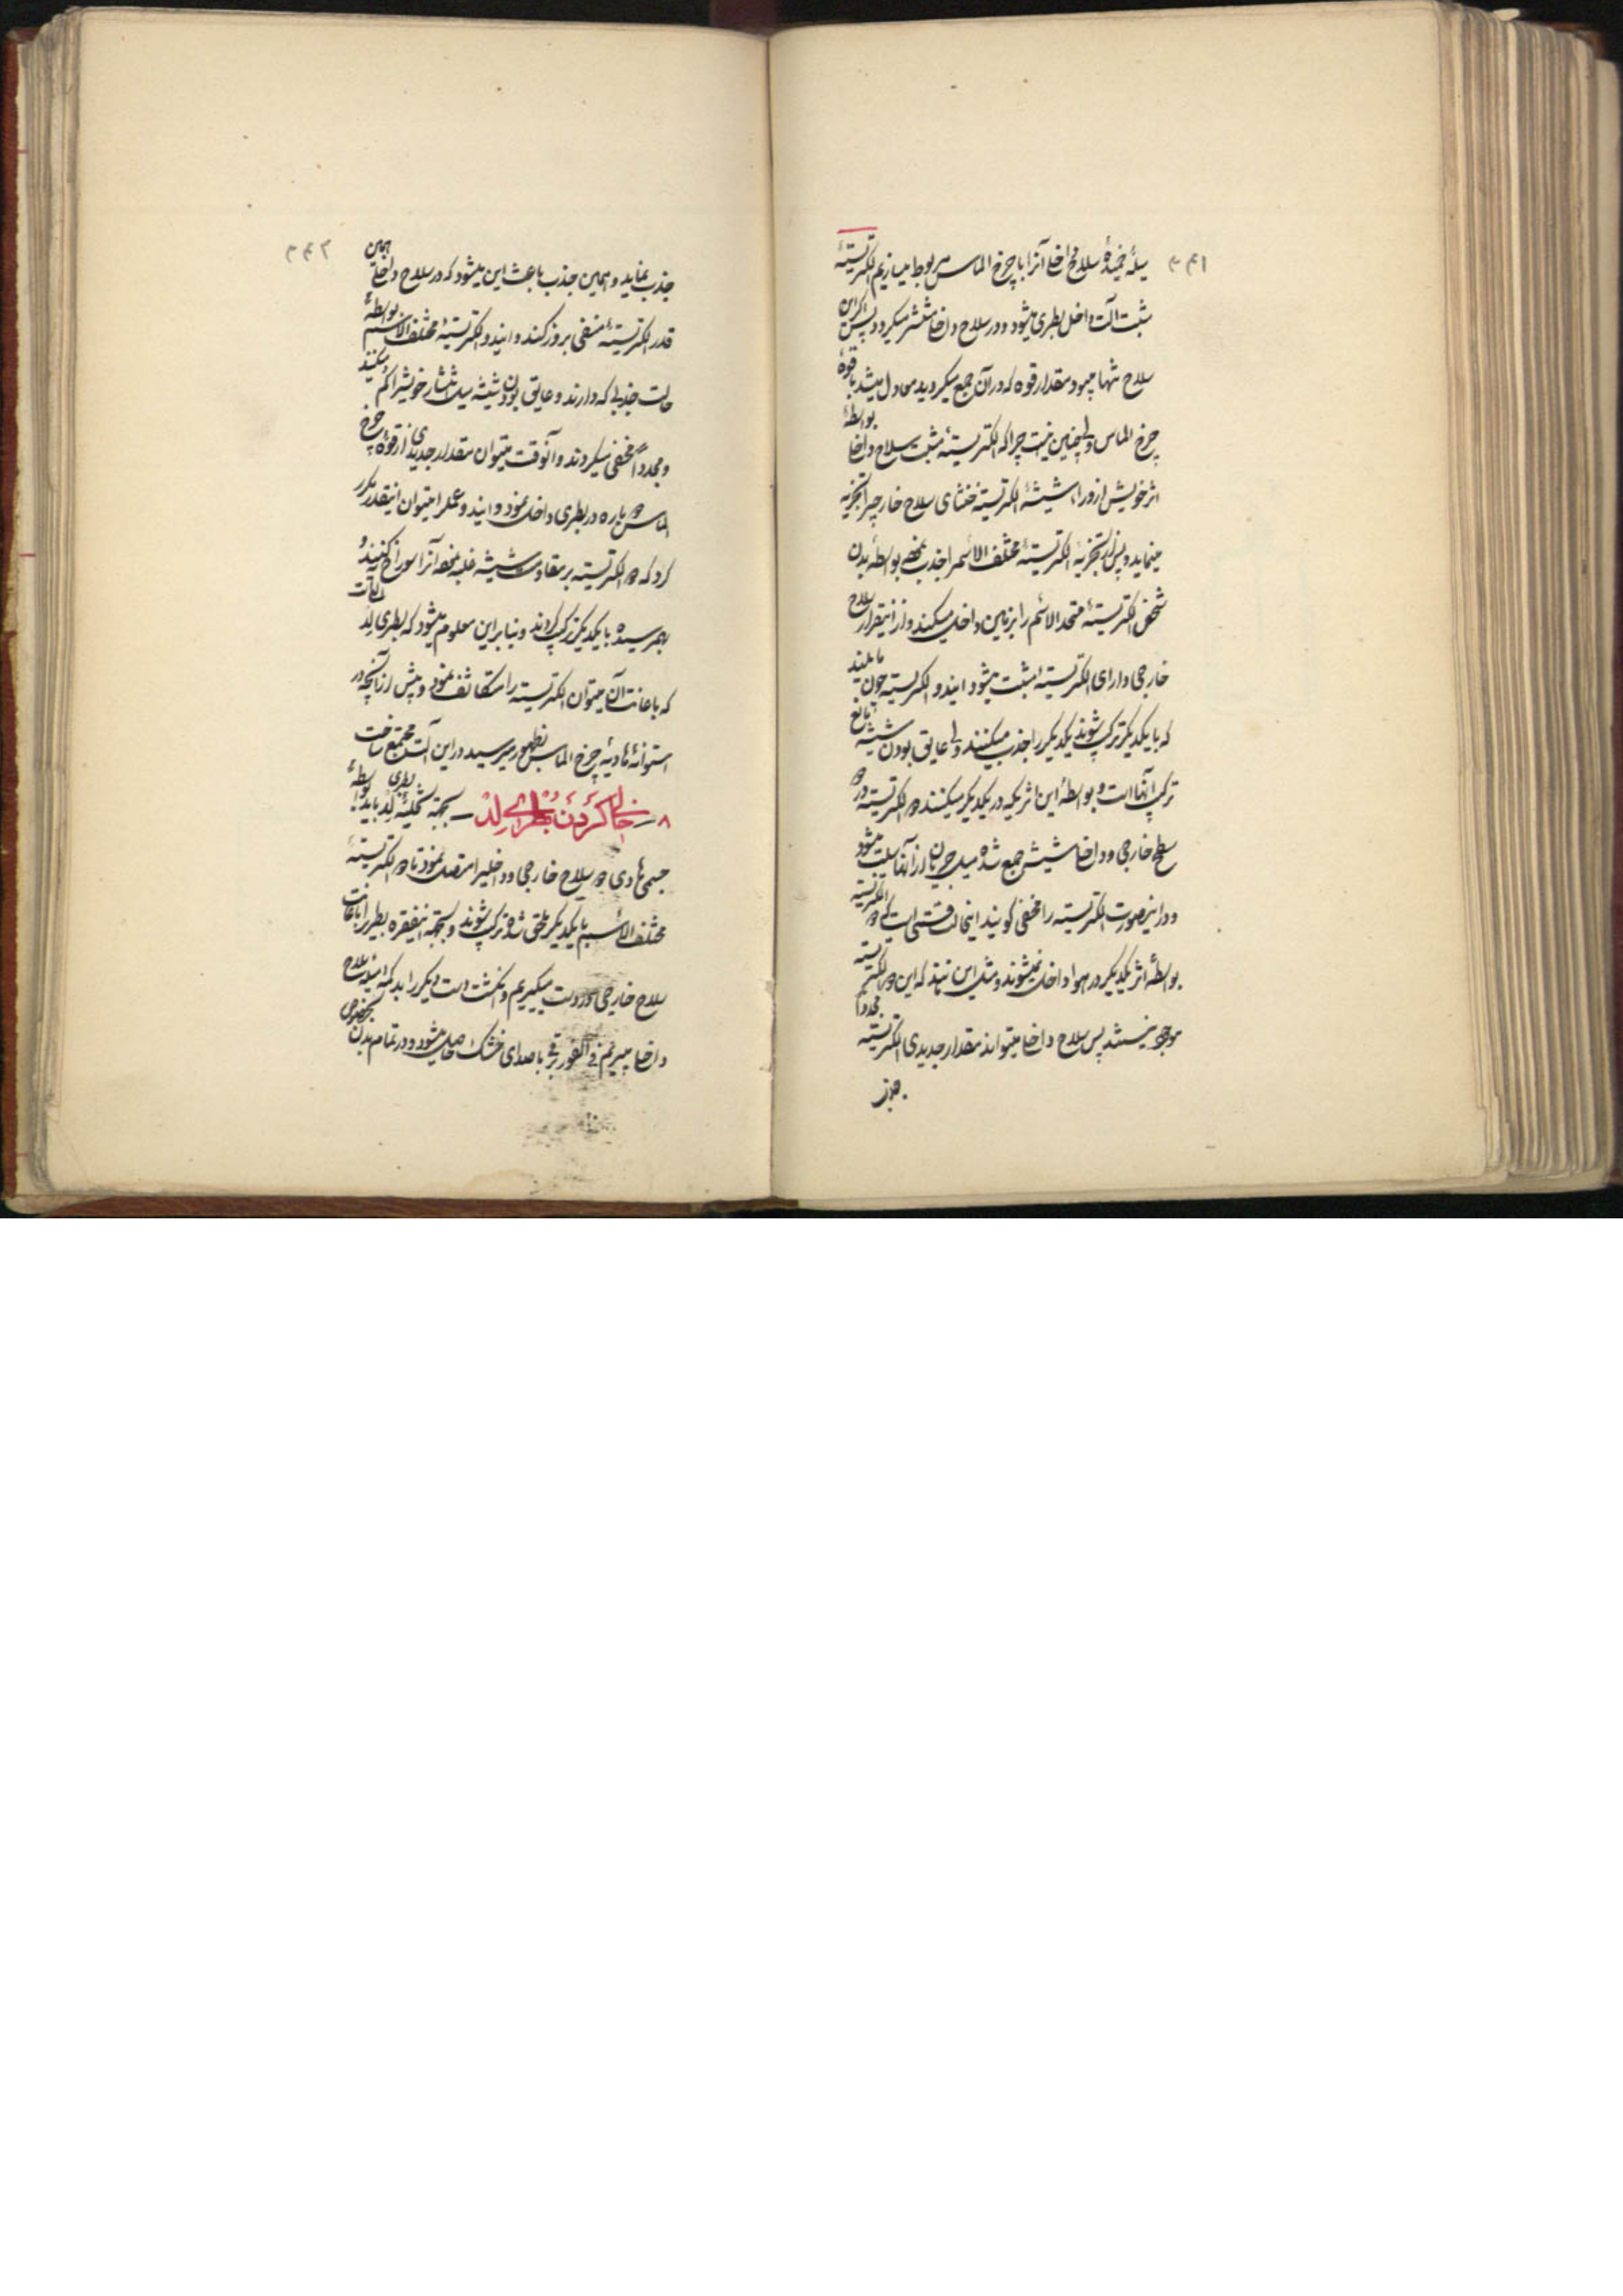 ۳۴۱
میلهٔ خمیدهٔ سلاح داخلی آنرا با چرخ الماس مربوط میسازیم الکتریسیتهٔ
مثبت آلت داخل بطری میشود و در سلاح داخلی منتشر میگردد پس اگر این
سلاح تنها میبود مقدار قوه که در آن جمع میگردید معادل میشد با قوهٔ
چرخ الماس ولی چنین نیست چرا که الکتریسیتهٔ مثبت سلاح داخلی بواسطهٔ
اثر خویش از ورای شیشهٔ الکتریسیته خنثای سلاح خارجی را تجزیه
مینماید و پس از تجزیه الکتریسیتهٔ مختلف الاسم را جذب نموده بواسطه بدن
شخص الکتریسیتهٔ متحد الاسم را بزمین داخل میکند و از اینقرار سلاح
خارجی دارای الکتریسیته مثبت میشود ایندو الکتریسیته چون مایلند
که با یکدیگر ترکیب شوند یکدیگر را جذب میکنند ولی عایق بودن شیشه مانع
ترکیب آنها است و بواسطهٔ این اثر که در یکدیگر میکنند دو الکتریسیته در دو
سطح خارجی و داخلی شیشه جمع شده میل جریان از آنها سلب میشود
و در اینصورت الکتریسیته را مخفی گویند اینحالت قسمی است که دو الکتریسیته
بواسطهٔ اثر یکدیگر در هوا داخل نمیشوند و مثل این نیند که این دو الکتریسیته
موجود نیستند پس سلاح داخلی میتواند مقدار جدیدی الکتریسیته مجدداً
جذب
۳۴۲
جذب نماید و همین جذب باعث این میشود که در سلاح داخلی همین
قدر الکتریسیتهٔ منفی بروز کند و ایندو الکتریسیتهٔ مختلف الاسم بواسطهٔ
حالت جذبی که دارند و عایق بودن شیشه میل انتشار خویش را کم میکنند
و مجدداً مخفی میگردند و آنوقت میتوان مقدار جدیدی از قوهٔ چرخ
الماس دو باره در بطری داخل نمود و ایند و عمل را میتوان اینقدر مکرر
کرد که دو الکتریسیته بر مقاومت شیشه غلبه نموده آنرا سوراخ کنند و
بهم رسیده با یکدیگر ترکیب گردند و بنا براین معلوم میشود که بطری لید آلتی است
که باعانت آن میتوان الکتریسیته را متکاثف نمود و بیش از آنچه در
استوانهٔ هادیهٔ چرخ الماس بظهور میرسید در این آلت مجتمع ساخت
۸ — خالی کردن بطرای لید — بجهة تخلیهٔ بطری لید باید بواسطهٔ
جسمی هادی دو سلاح خارجی و داخلی را متصل نمود تا دو الکتریسیتهٔ
مختلف الاسم با یکدیگر ملحق شده ترکیب شوند و بجهة اینفقره بطری را باعانت
سلاح خارجی در دست میگیریم و انگشت دست دیگر را بدکمه میله سلاح
داخلی میبریم فی الفور برقی با صدای خشک حاصل میشود و در تمام بدن بخصوص